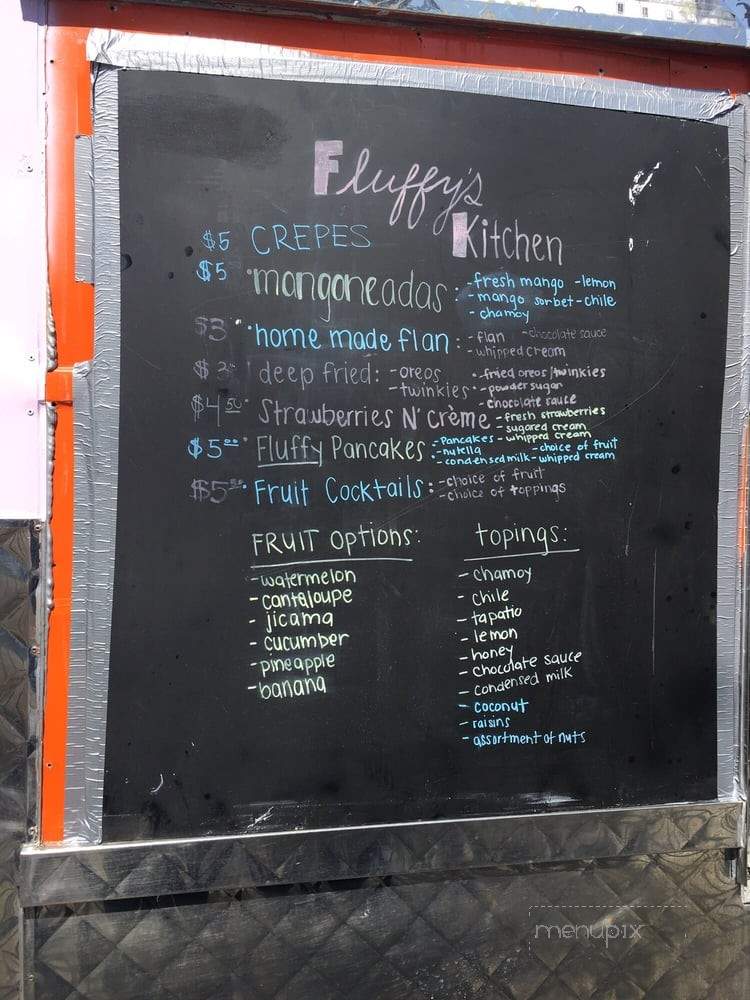 Fluffy's
Kitchen
$5 CREPES
$5 · mangoneadas · -fresh mango -lemon
-mango sorbet -chile
-chamoy
$3 · home made flan : -flan -chocolate sauce
-whipped cream
$3 · deep fried: -oreos · -fried oreos/twinkies
-twinkies · -powder sugar
-chocolate sauce
$4.50 · Strawberries N' Crème -fresh strawberries
-sugared cream
-whipped cream
$5.00 · Fluffy Pancakes : -Pancakes -choice of fruit
-nutella
-condensed milk -whipped cream
$5.00 · Fruit Cocktails : -choice of fruit
-choice of toppings
FRUIT OPtions:
-watermelon
-cantaloupe
-jicama
-cucumber
-pineapple
-banana
topings:
-chamoy
-chile
-tapatio
-lemon
-honey
-chocolate sauce
-condensed milk
-coconut
-raisins
-assortment of nuts
menupix